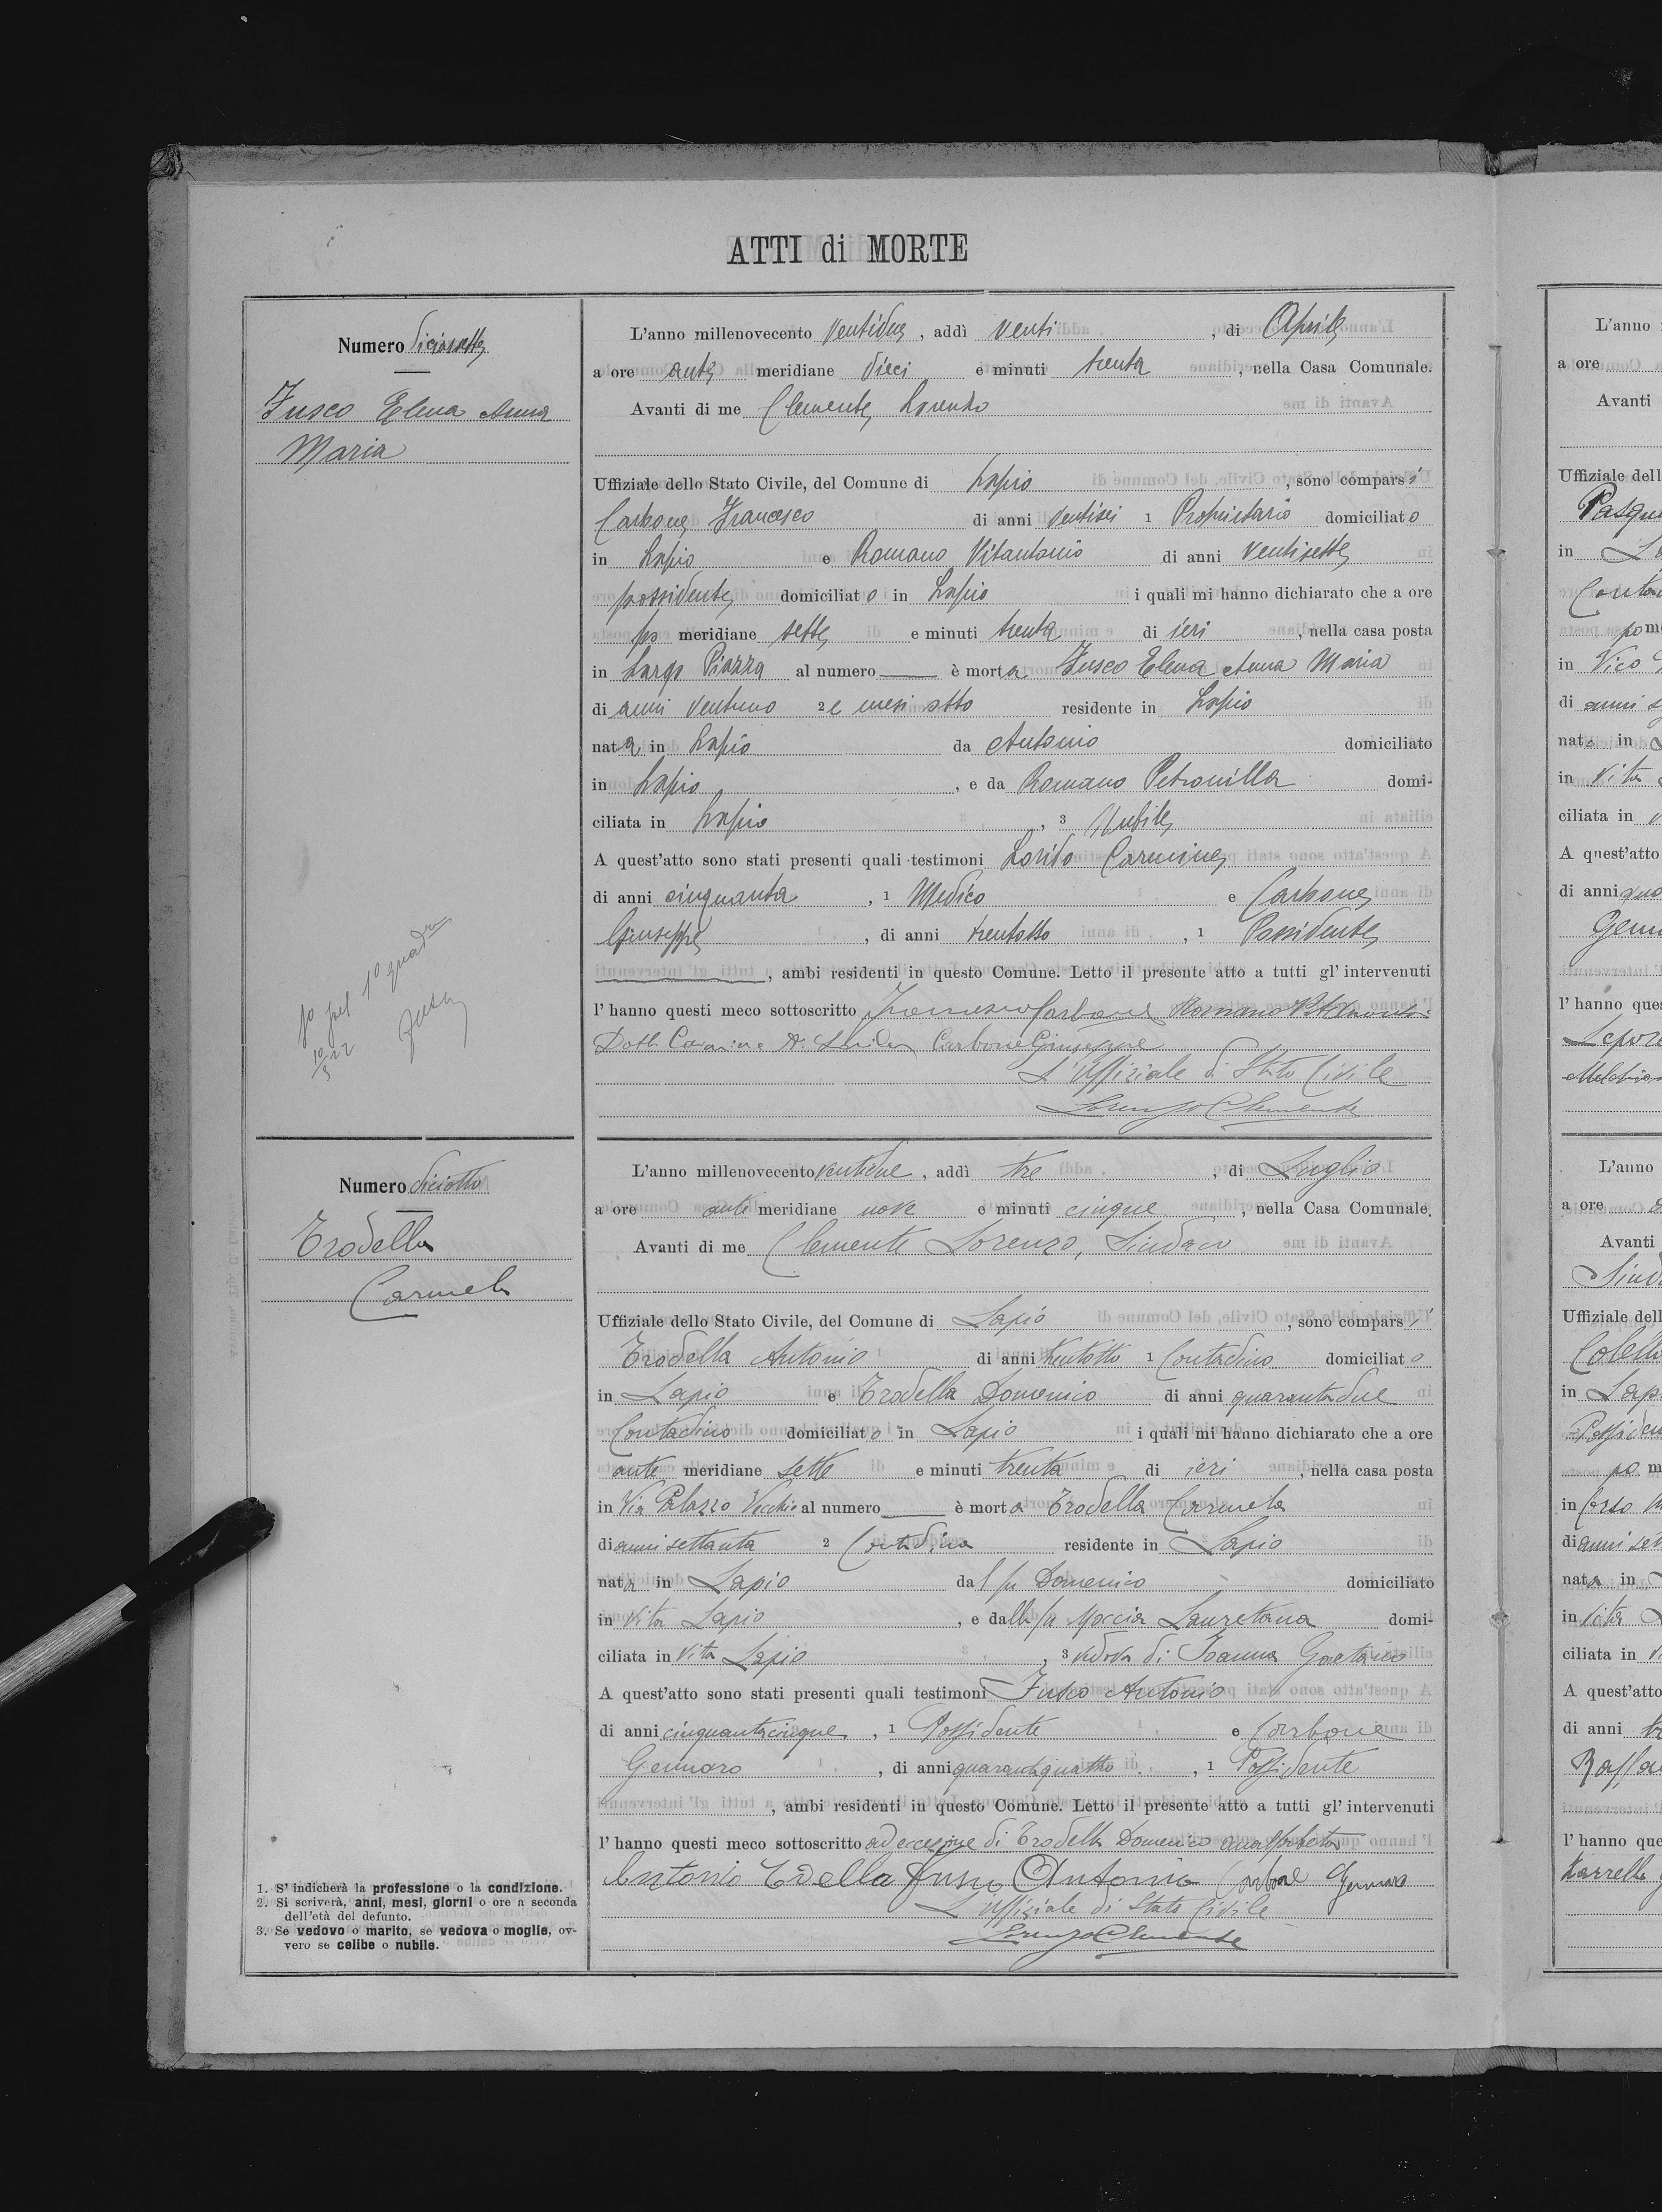 ATTI di MORTE
Numero diciassette
Fusco Elena Anna
Maria
L'anno millenovecento ventidue, addì venti, di Aprile
a ore anti meridiane dieci e minuti trenta, nella Casa Comunale.
Avanti di me Clemente Lorenzo
Uffiziale dello Stato Civile, del Comune di Lapio, sono comparsi
Carbone Francesco di anni ventisei 1 Proprietario domiciliato
in Lapio e Romano Vitantonio di anni ventisette
possidente domiciliato in Lapio i quali mi hanno dichiarato che a ore
po meridiane sette e minuti trenta di ieri, nella casa posta
in Largo Piazza al numero — è morta Fusco Elena Anna Maria
di anni ventuno 2 e mesi otto residente in Lapio
nata in Lapio da Antonio domiciliato
in Lapio, e da Romano Petronilla domi-
ciliata in Lapio, 3 Nubile
A quest'atto sono stati presenti quali testimoni Lorido Carmine
di anni cinquanta, 1 Medico e Carbone
Giuseppe, di anni trentotto, 1 Possidente
, ambi residenti in questo Comune. Letto il presente atto a tutti gl' intervenuti
l' hanno questi meco sottoscritto Francesco Carbone Romano Vitantonio
Dott. Carmine Carbone Giuseppe
L'Uffiziale di Stato Civile
Lorenzo Clemente
1º
10/5 22
Numero diciotto
Erodella
Carmela
L'anno millenovecento ventidue, addì tre, di Luglio
a ore anti meridiane nove e minuti cinque, nella Casa Comunale.
Avanti di me Clemente Lorenzo, Sindaco
Uffiziale dello Stato Civile, del Comune di Lapio, sono comparsi
Erodella Antonio di anni trentotto 1 Contadino domiciliato
in Lapio e Erodella Domenico di anni quarantadue
Contadino domiciliato in Lapio i quali mi hanno dichiarato che a ore
ante meridiane sette e minuti trenta di ieri, nella casa posta
in Via Palazzo Vecchio al numero — è morta Erodella Carmela
di anni settanta 2 Contadina residente in Lapio
nata in Lapio dal fu Domenico domiciliato
in vita Lapio, e dalla fu Moccia Lauretana domi-
ciliata in vita Lapio, 3 vedova di Ioanna Gaetano
A quest'atto sono stati presenti quali testimoni Fusco Antonio
di anni cinquantacinque, 1 Possidente e Carbone
Gennaro, di anni quarantaquattro, 1 Possidente
, ambi residenti in questo Comune. Letto il presente atto a tutti gl' intervenuti
l' hanno questi meco sottoscritto ad eccezione di Erodella Domenico analfabeta
Antonio Erodella Fusco Antonio Carbone Gennaro
L'Uffiziale di Stato Civile
Lorenzo Clemente
1. S' indicherà la professione o la condizione.
2. Si scriverà, anni, mesi, giorni o ore a seconda
dell'età del defunto.
3. Se vedovo o marito, se vedova o moglie, ov-
vero se celibe o nubile.
L'anno
a ore
Avanti
Uffiziale dell
in
in Vico
di anni
nat in
in vita
ciliata in
A quest'atto
di anni
l' hanno que
L'anno
a ore
Avanti
Uffiziale dell
in Lap
po m
in Corso
di anni
nata in
in vita
ciliata in
A quest'atto
di anni
l' hanno que